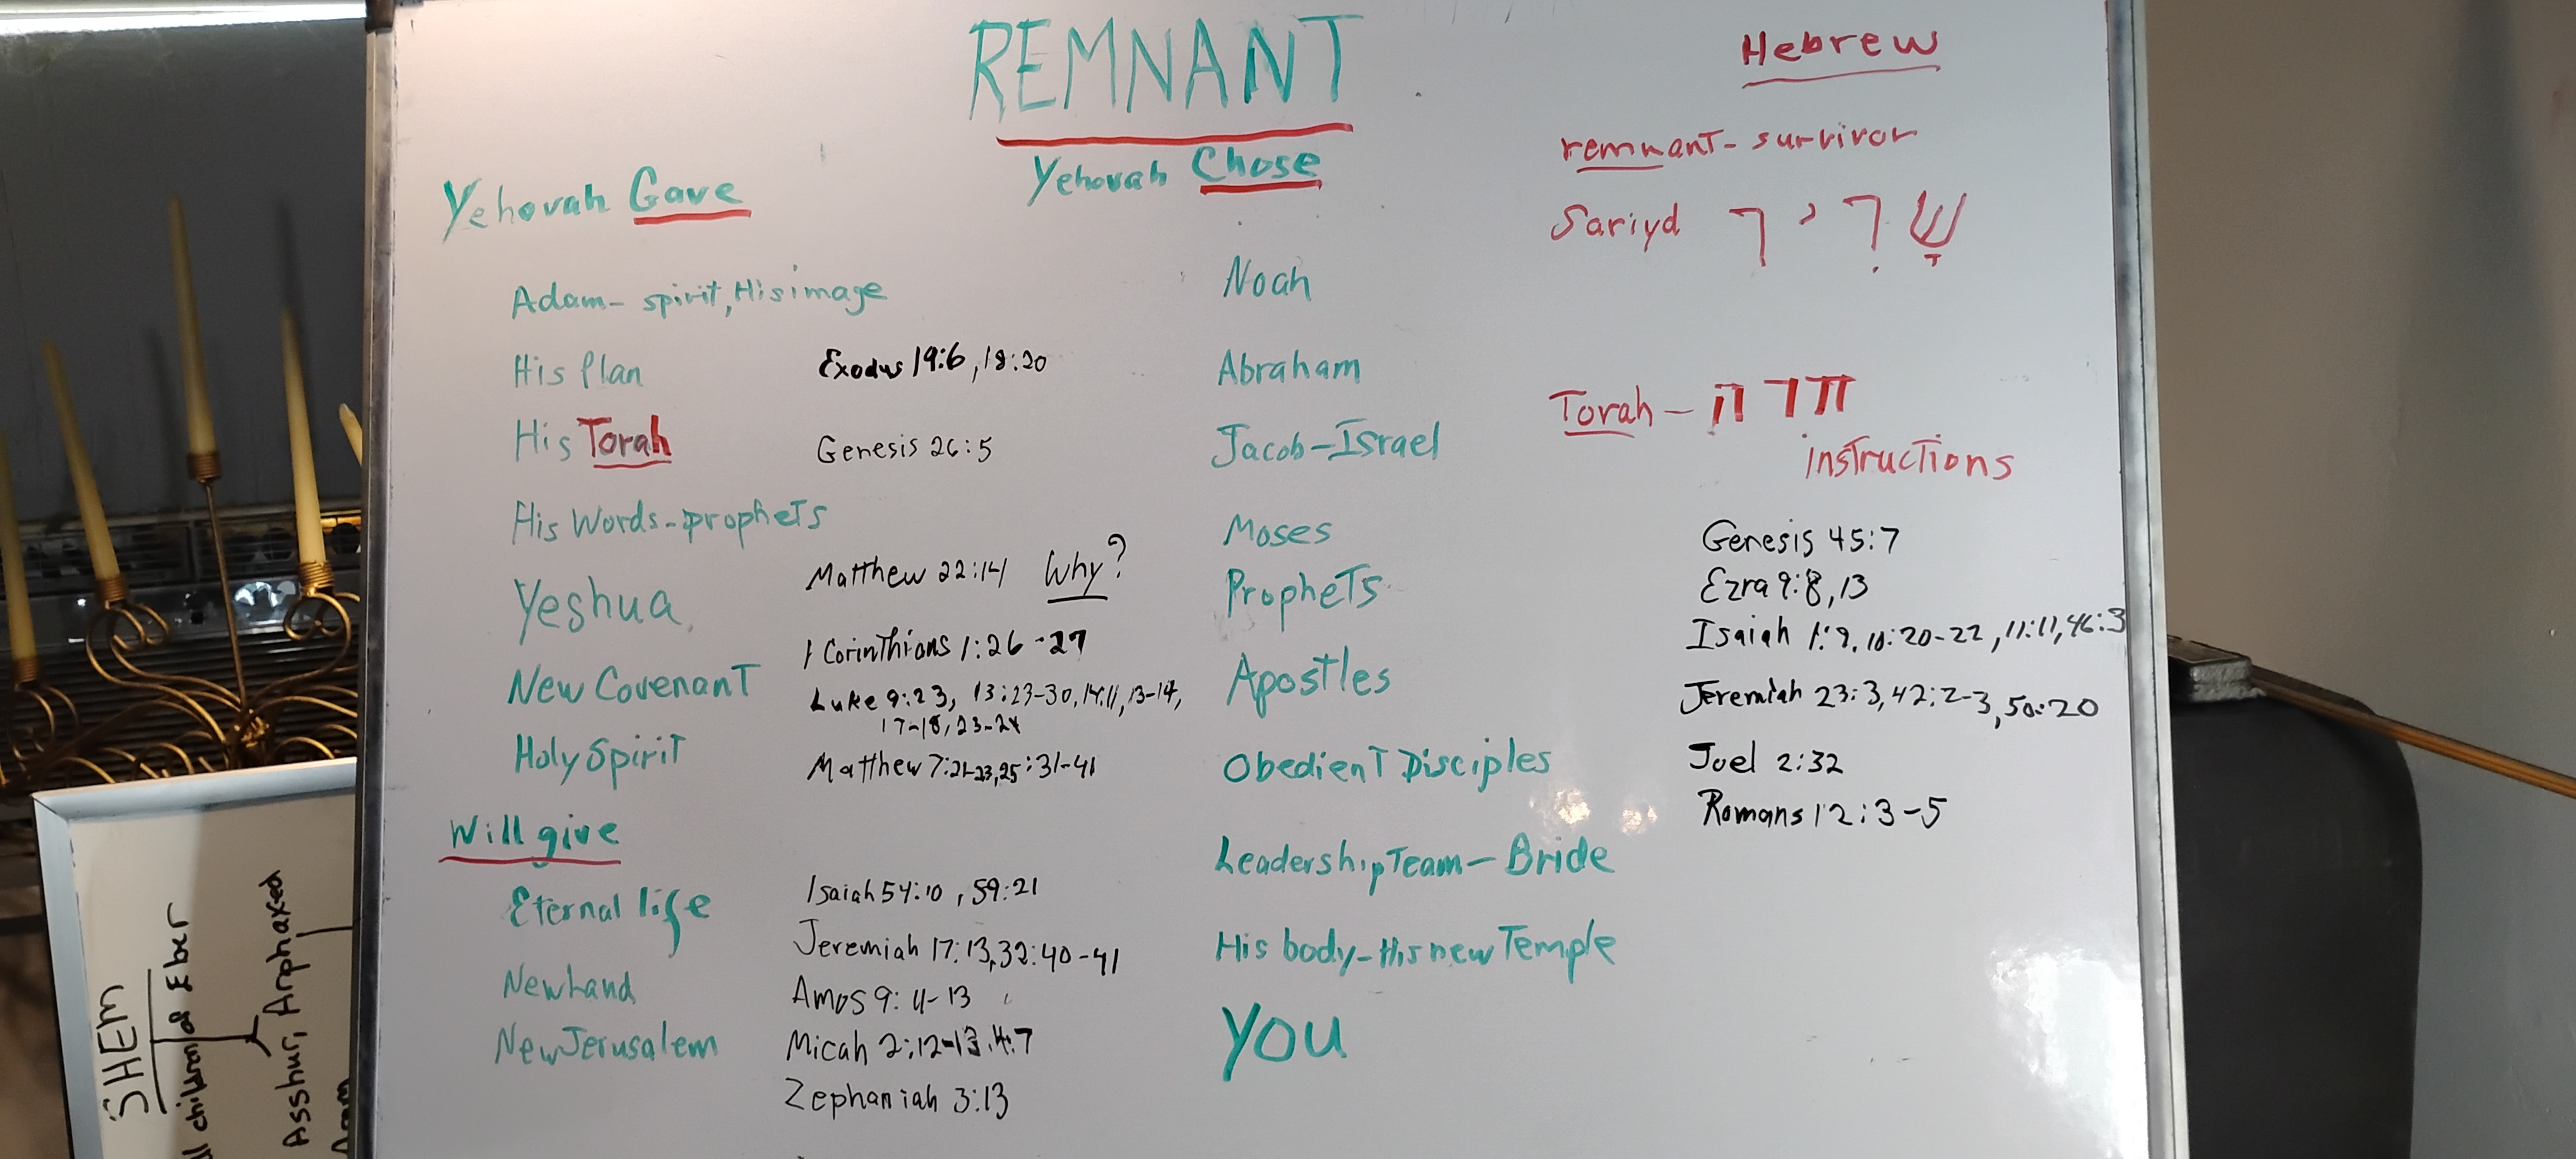 REMNANT
Hebrew
Yehovah Gave
Yehovah Chose
remnant - survivor
Sariyd שָׂרִיד
Adam - spirit, His image
Noah
His Plan
Exodus 19:6, 18:20
Abraham
Torah - תורה
instructions
His Torah
Genesis 26:5
Jacob - Israel
His Words - prophets
Moses
Genesis 45:7
Yeshua
Matthew 22:14 Why?
Prophets
Ezra 9:8, 13
Isaiah 1:9, 10:20-22, 11:11, 46:3
New Covenant
1 Corinthians 1:26-27
Luke 9:23, 13:23-30, 14:11, 13-14,
17-18, 23-24
Apostles
Jeremiah 23:3, 42:2-3, 50:20
Holy Spirit
Matthew 7:21-23, 25:31-41
Obedient Disciples
Joel 2:32
Romans 12:3-5
Will give
Leadership Team - Bride
Eternal life
Isaiah 54:10, 59:21
Jeremiah 17:13, 32:40-41
His body - His new Temple
New Land
Amos 9:11-13
New Jerusalem
Micah 2:12-13, 4:7
YOU
Zephaniah 3:13
SHEM
children of Eber
Asshur, Arphaxed